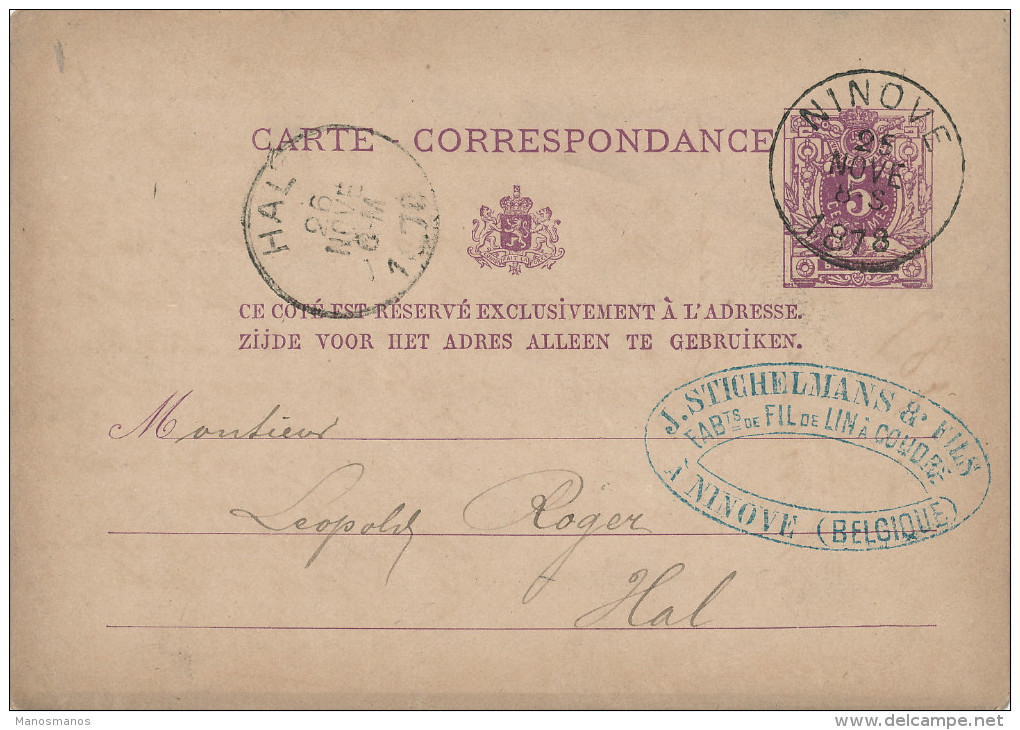 CARTE CORRESPONDANCE
NINOVE
25
NOVE
8 S
1878
HAL
26
NOVE
6-M
5
CE COTÉ EST RESERVÉ EXCLUSIVEMENT À L'ADRESSE.
ZIJDE VOOR HET ADRES ALLEEN TE GEBRUIKEN.
J. STICHELMANS & FILS
FABTS DE FIL DE LIN À COUDRE
À NINOVE (BELGIQUE)
Monsieur
Leopold Roger
Hal
Manosmanos
www.delcampe.net